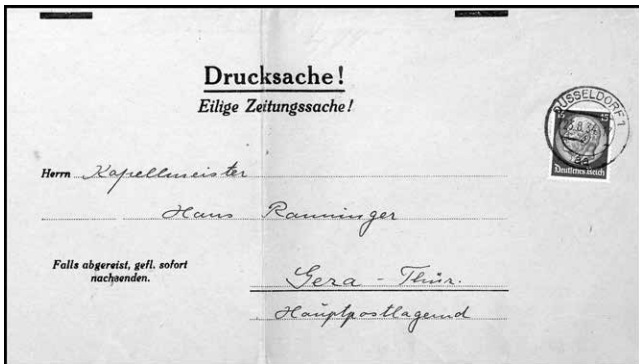 Drucksache!
Eilige Zeitungssache!
DÜSSELDORF 1
15 15
Deutsches Reich
Herrn Kapellmeister
Hans Ranninger
Falls abgereist, gefl. sofort
nachsenden.
Gera - Thür.
Hauptpostlagernd